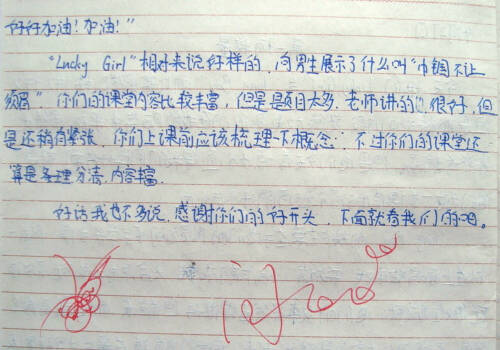 好好加油！加油！”
“Lucky Girl”相对来说好样的，向男生展示了什么叫“巾帼不让
须眉”。你们的课堂内容比较丰富，但是题目太多，老师讲的很好，但
是还稍有紧张，你们上课前应该梳理一下概念，不过你们的课堂还
算是条理分清，内容丰富。
好话我也不多说，感谢你们的好开头，下面就看我们的吧。
good